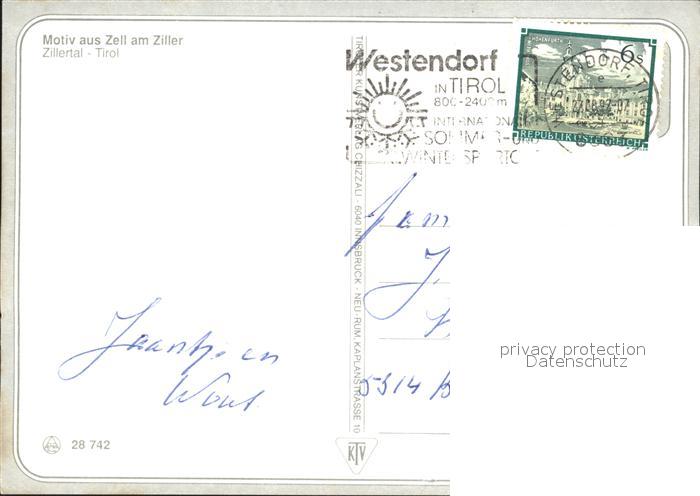 Motiv aus Zell am Ziller
Zillertal - Tirol
Westendorf
IN TIROL
800-2400 m
INTERNATIONA
SOMMER- UND
WINTERSPORTO
HOHENFURTH
6 S
REPUBLIK ÖSTERREICH
WESTENDORF, TIROL
TIROLER KUNSTVERLAG CHIZZALI · 6040 INNSBRUCK · NEU-RUM, KAPLANSTRASSE 10
Fam
J.
Jaantje en
Wout
5314 B
privacy protection
Datenschutz
28 742
KTV